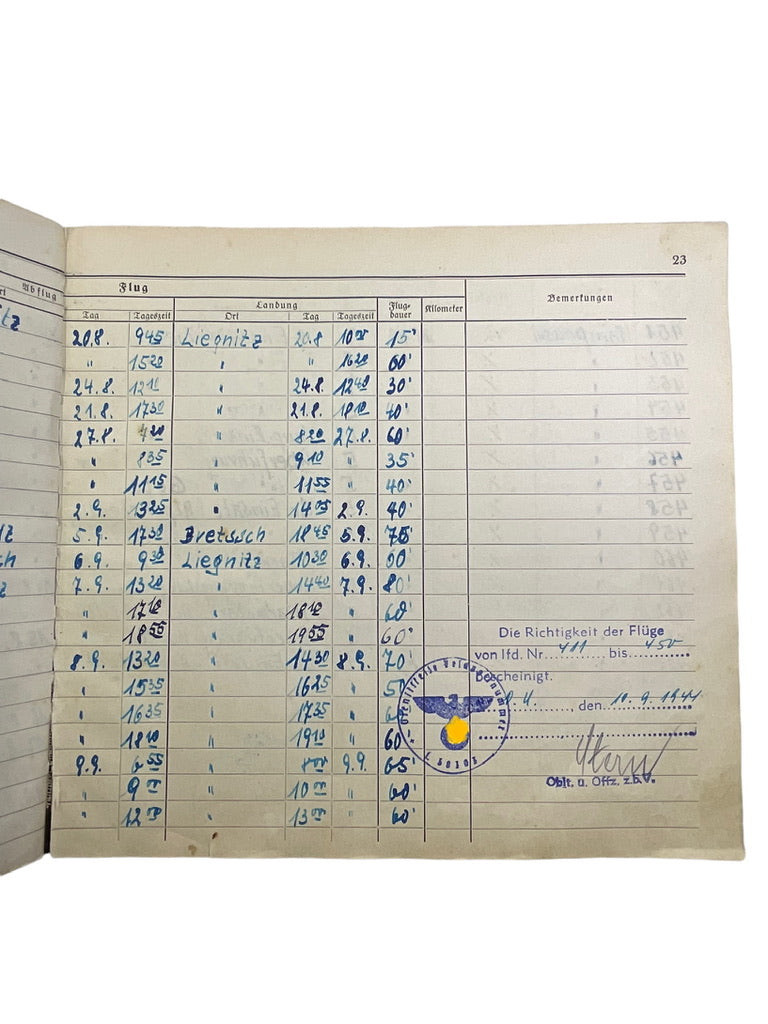 23
Abflug
Flug
Landung
Bemerkungen
Tag Tageszeit Ort Tag Tageszeit Flug-dauer Kilometer
20.8. 9 45 Liegnitz 20.8 10 00 15'
" 15 20 " " 16 20 60'
24.8. 12 10 " 24.8. 12 40 30'
21.8. 17 30 " 21.8. 18 10 40'
27.8. 7 20 " 8 20 27.8. 60'
" 8 35 " 9 10 " 35'
" 11 15 " 11 55 " 40'
2.9. 13 25 " 14 05 2.9. 40'
5.9. 17 30 18 45 5.9. 75'
6.9. 9 30 Liegnitz 10 30 6.9. 60'
7.9. 13 20 " 14 40 7.9. 80'
" 17 10 " 18 10 " 60'
" 18 55 " 19 55 " 60'
8.9. 13 20 " 14 30 8.9. 70'
" 15 35 " 16 25 " 50'
" 16 35 " 17 35 " 60'
" 18 10 " 19 10 " 60'
9.9. 6 55 " 8 00 9.9. 65'
" 9 00 " 10 00 " 60'
" 12 00 " 13 00 " 60'
Die Richtigkeit der Flüge
von lfd. Nr. 411 bis 450
bescheinigt.
den 10.9.1944
Oblt. u. Offz. z.b.V.